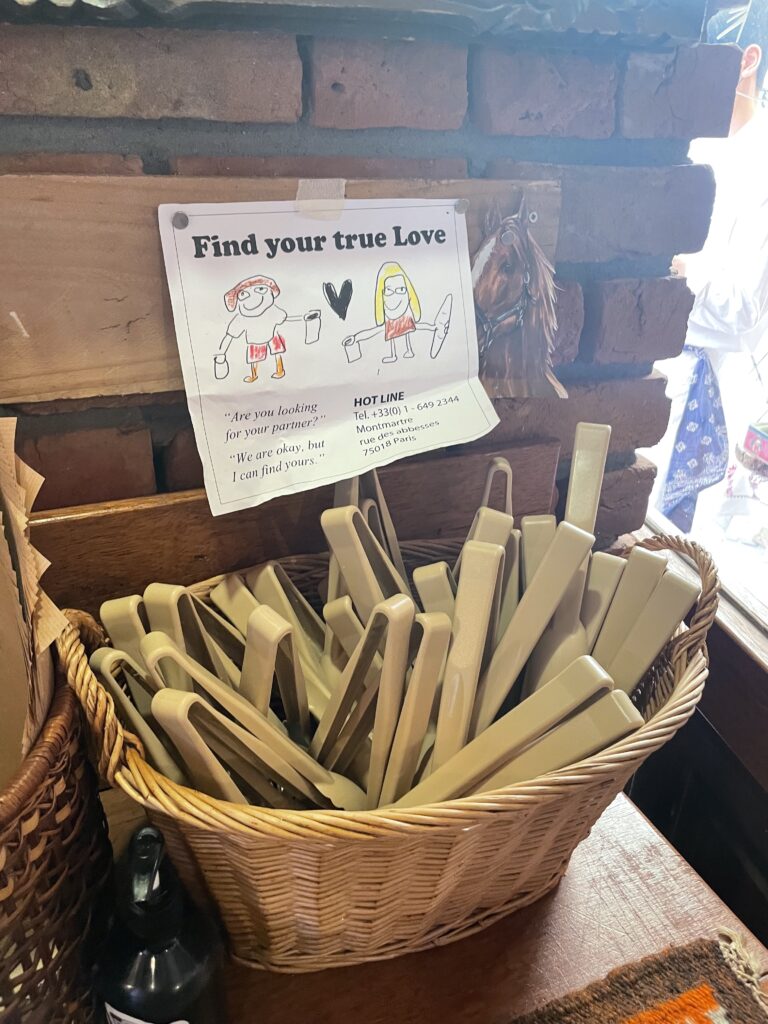 Find your true Love
"Are you looking
for your partner?"
"We are okay, but
I can find yours."
HOT LINE
Tel. +33(0) 1 - 649 2344
Montmartre
rue des abbesses
75018 Paris